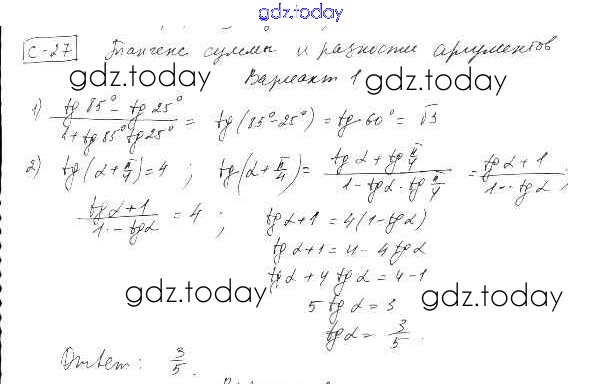 gdz.today
С-27 Тангенс суммы и разности аргументов
gdz.today gdz.today
Вариант 1
1) (tg 85° - tg 25°)/(1 + tg 85° tg 25°) = tg(85° - 25°) = tg 60° = √3
2) tg(α + π/4) = 4 ; tg(α + π/4) = (tg α + tg π/4)/(1 - tg α · tg π/4) = (tg α + 1)/(1 - tg α) ;
(tg α + 1)/(1 - tg α) = 4 ; tg α + 1 = 4(1 - tg α)
tg α + 1 = 4 - 4 tg α
tg α + 4 tg α = 4 - 1
gdz.today gdz.today
5 tg α = 3
tg α = 3/5 .
Ответ: 3/5 .